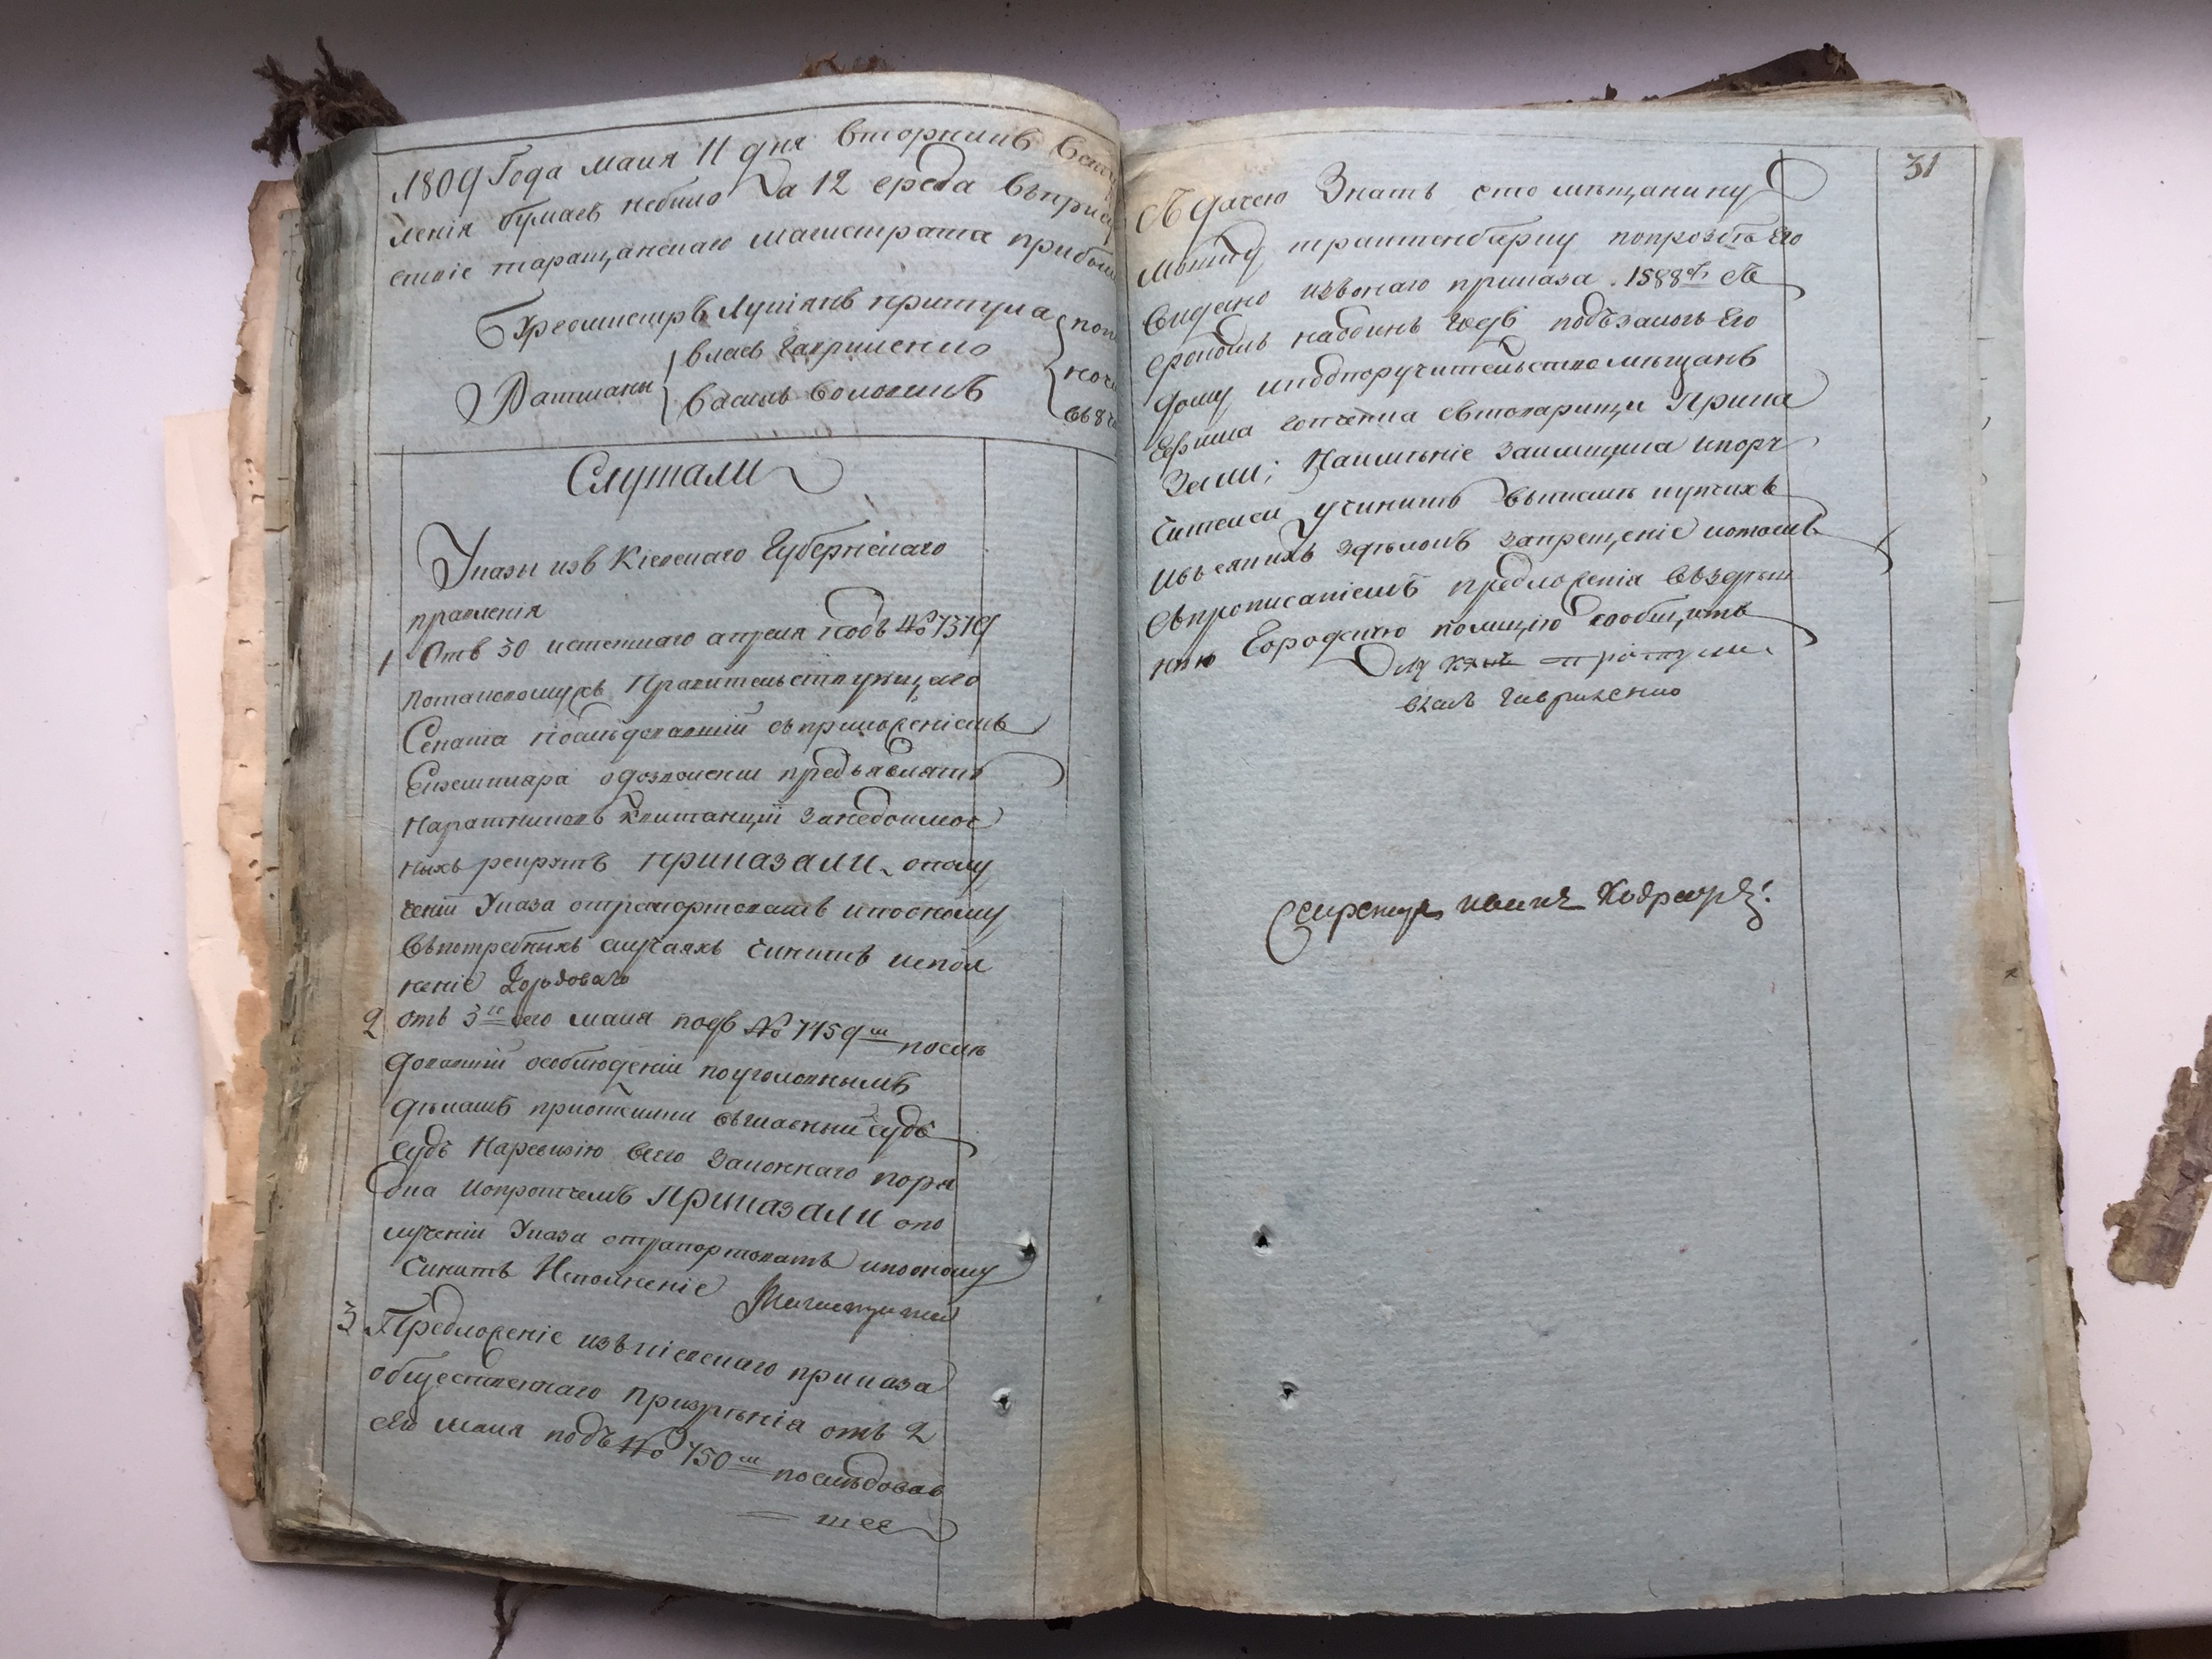 1809 Года маия 11 дня вторникъ
ленія бумагъ небило а 12 среда въпрису
ствіе таращанскаго магистрата прибыли
Бургомистръ Лукіянъ притула
влась Гавриленко
Ратманы
василь волошинъ
Слушали
Указы изъ Кіевскаго Губернскаго
правленія
1 Отъ 30 истекшаго апреля подъ № 7319
потаковомужъ Правительствующаго
Сената послѣдовавшій съприложеніемъ
Екземпляра одозволеніи предъявлять
Наратниковъ квитанціи занедоимоч
ныхъ рекрутъ приказали ополу
ченіи Указа отрапортовать ипооному
Въпотребныхъ случаяхъ чинить испол
неніе
2 отъ 3го сего маия подъ № 7459м послѣ
довавшій особлюденіи поуголовнымъ
дѣламъ приотсылки въглавный судъ
судъ Наревизію всего законнаго поря
дка ипротчемъ Приказали опо
лученіи Указа отрапортовать ипооному
Чинить Исполненіе
3 Предложеніе изъкіевскаго приказа
общественнаго призрѣнія отъ 2
сего маия подъ № 750м последовав
шее
31
Здачею Знать сто мѣщанину
трактенбергу попрозбѣ Его
видано изъонаго приказа 1588 р. съ
срокомъ наодинъ годъ подъзалогъ Его
дому иподпоручительство мѣщанъ
Ершка стоварищи Прика
зали; Наимѣніе заимщика ипору
чителей учинить
ивъ запрещеніе ипотомъ
Съпрописаніемъ предложенія въздѣш
нюю Городскую полицію сообщить
влась гавриленко
Секретарь иванъ